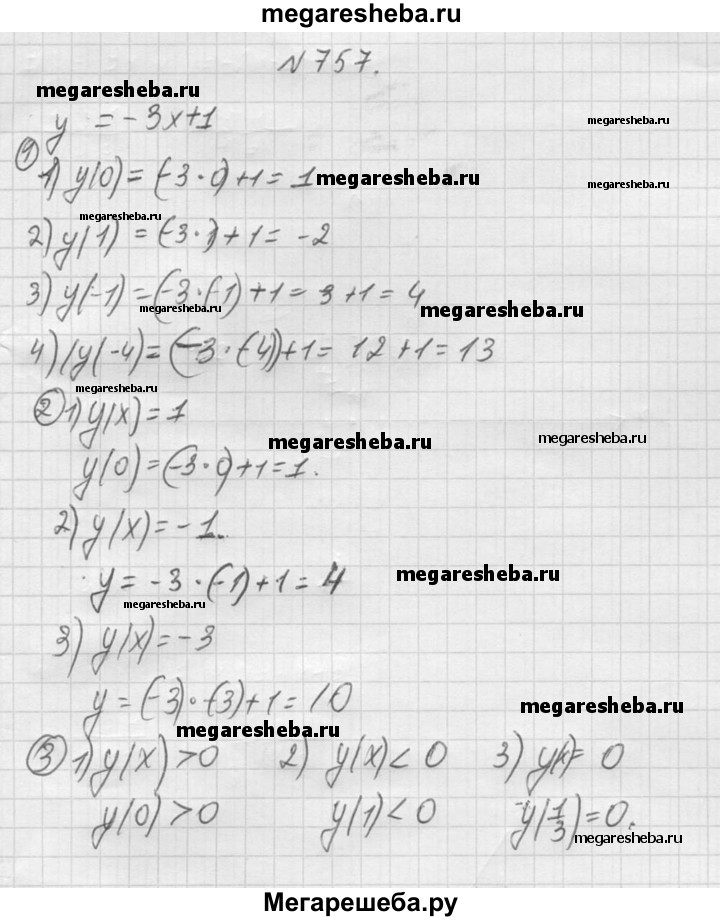 megaresheba.ru
N 757.
megaresheba.ru
y = -3x+1
megaresheba.ru
① 1) y(0) = (-3·0)+1 = 1
megaresheba.ru
megaresheba.ru
megaresheba.ru
2) y(1) = (-3·1)+1 = -2
3) y(-1) = (-3·(-1)+1 = 3+1 = 4
megaresheba.ru
megaresheba.ru
4) y(-4) = (-3·(-4))+1 = 12+1 = 13
megaresheba.ru
② 1) y(x) = 1
megaresheba.ru
megaresheba.ru
y(0) = (-3·0)+1 = 1.
2) y(x) = -1.
y = -3·(-1)+1 = 4
megaresheba.ru
megaresheba.ru
3) y(x) = -3
y = (-3)·(-3)+1 = 10
megaresheba.ru
megaresheba.ru
③ 1) y(x) > 0 2) y(x) < 0 3) y(x) = 0
y(0) > 0 y(1) < 0 y(1/3) = 0.
megaresheba.ru
Мегарешеба.ру